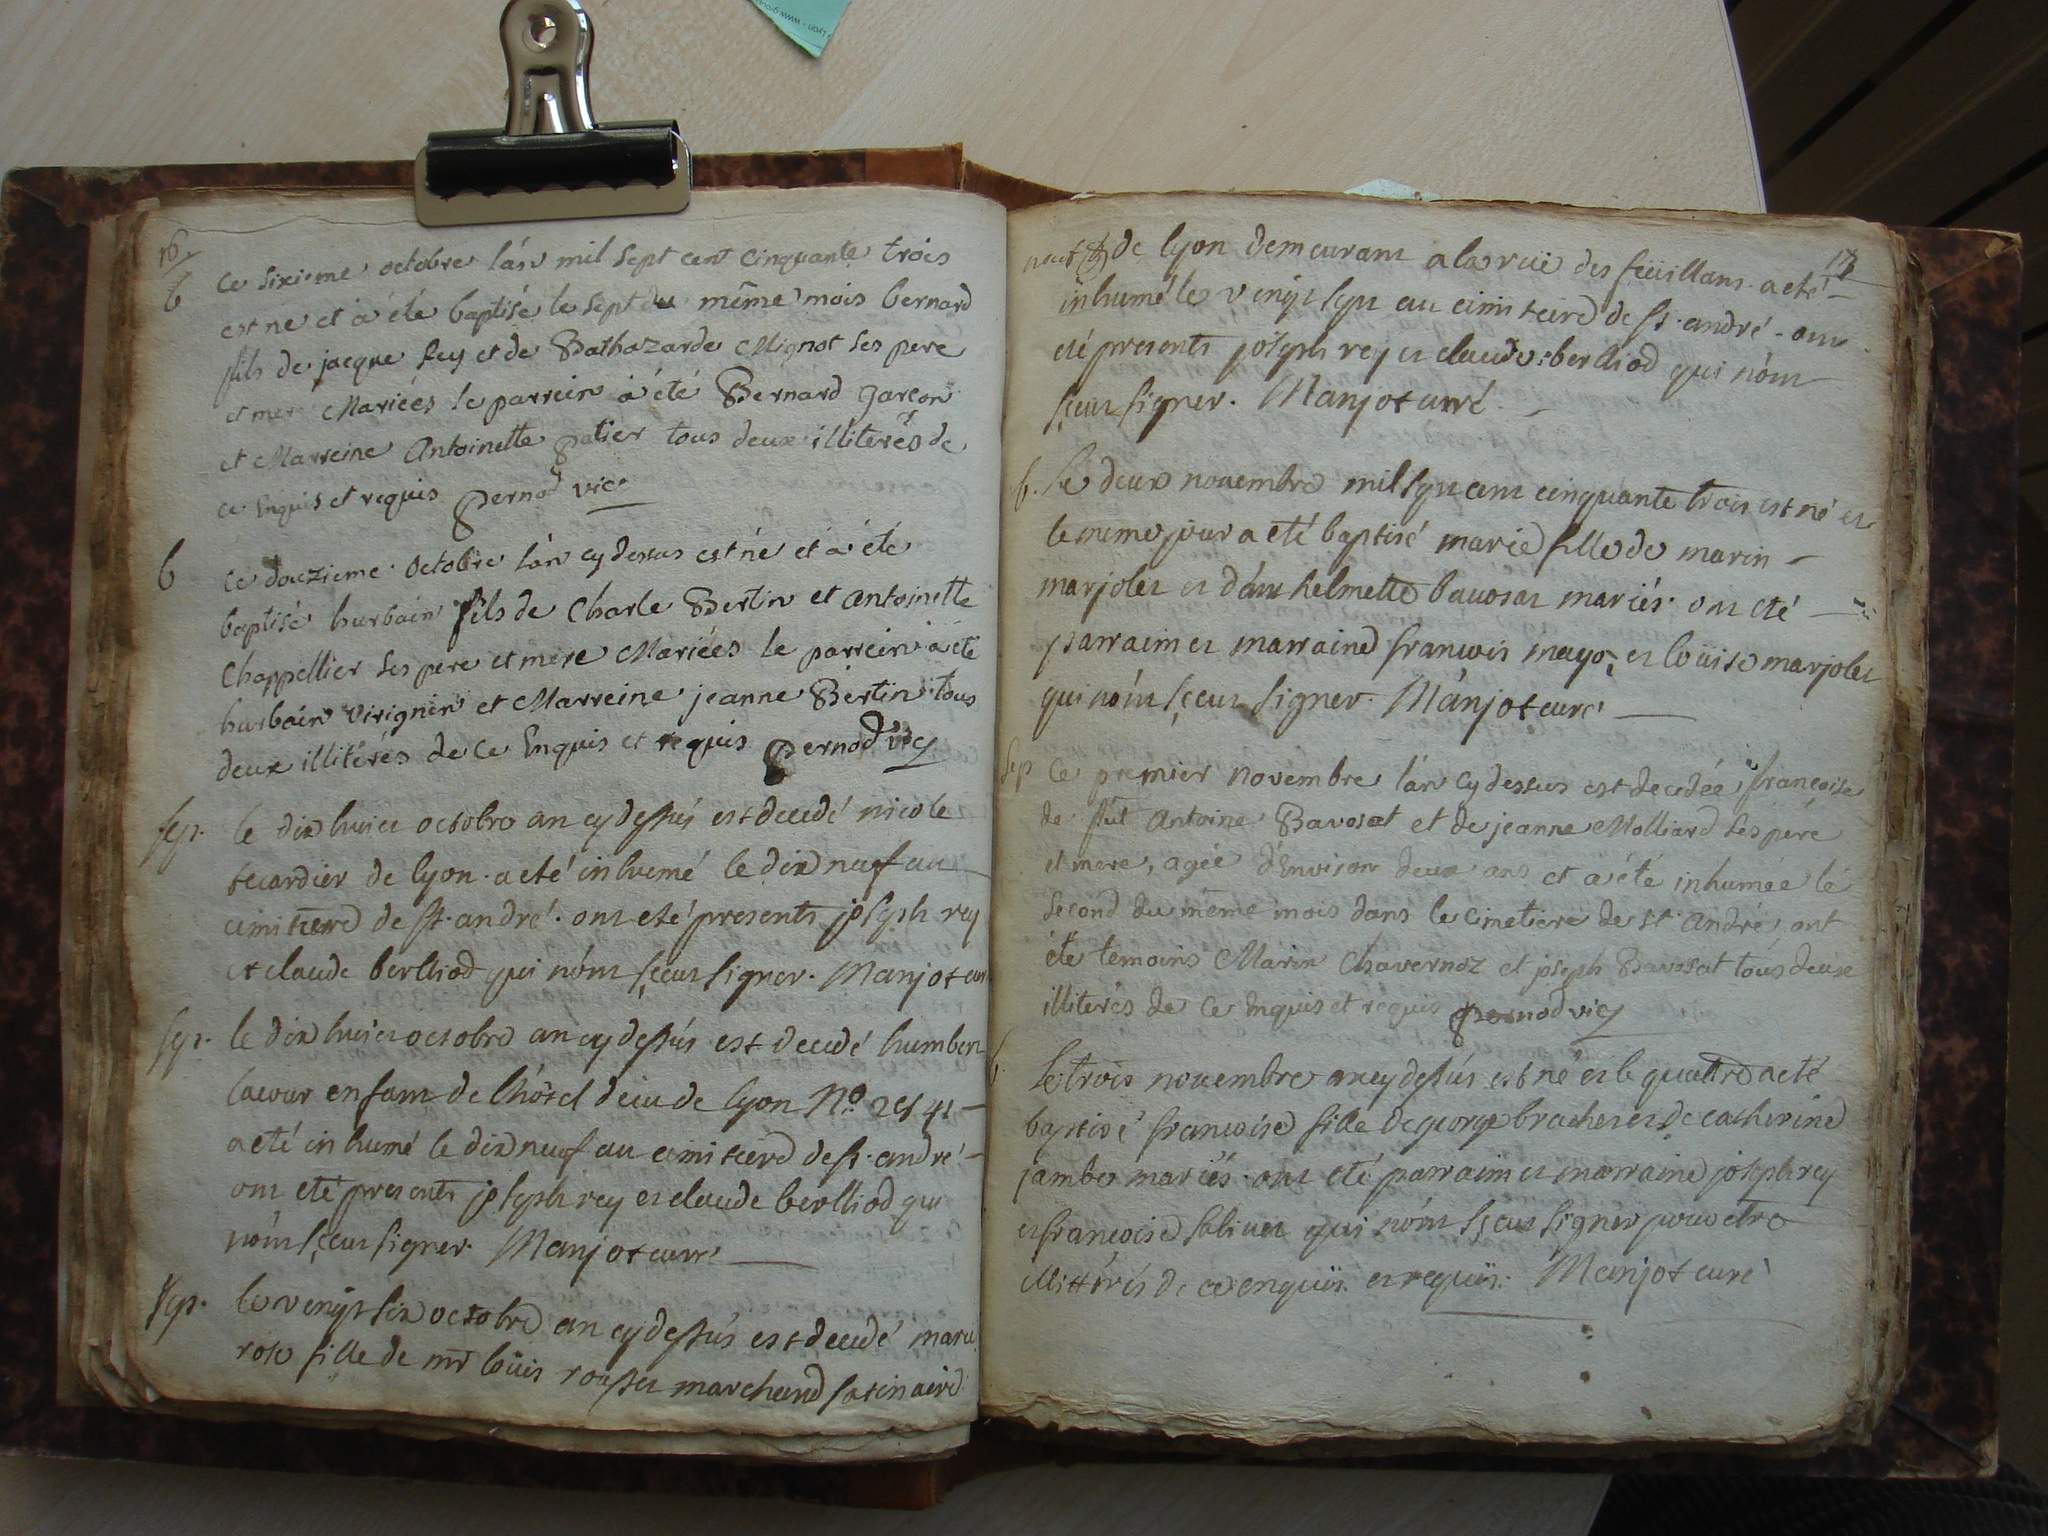 16
b
ce sixieme octobre l'án mil sept cent cinquante trois
est ne et à été baptisé le sept du même mois bernard
fils de jacque Rey et de Bathazarde Mignot ses pere
et mere Mariées le parrein à été Bernard jarcon
et Marreine Antoinette patier tous deux illiterés de
ce Enquis et requis pernod vic.
b
ce douzieme octobre l'án cy dessus est né et à été
baptisé hurbain fils de Charle Bertin et antoinette
Chappellier ses pere et mere Mariées le parrein à été
hurbain virignin et Marreine jeanne Bertin tous
deux illitérés de ce Enquis et requis pernod vic
sep.
le dix huict octobre an cy dessús est decedé nicole
tecardier de lyon a eté inhumé le dix neuf au
cimitierre de st. andré. ont eté presents joseph rey
et claude berlliod qui nónt sceu signer. Manjot curé
sep.
le dix huict octobre an cy dessús est decedé humbert
lacour enfant de l'hótel dieu de lyon No. 2541
a eté inhumé le dix neuf au cimitierre de st. andré
ont eté presents joseph rey et claude berlliod qui
nónt sceu signer. Manjot curé
sep.
le vingt six octobre an cy dessús est decedé marie
rose fille de mr loüis rousset marchand satinaire
17
de lyon demeurant a la ruë des feüillans. a eté
inhumé le vingt sept au cimiteire de st. andré. ont
eté presents joseph rey et claude berlliod qui nónt
sceu signer. Manjot curé.
b.
Le deux novembre mil sept cent cinquante trois est né et
le meme jour a eté baptisé marie fille de marin
marjolet et d'anthelmette bavosat mariés. ont eté
parraim et marraine francois mayo, et loüise marjolet
qui nónt sceu signer. Mánjot curé
sep
Ce premier novembre l'án cy dessus est decedée françoise
de fût Antoine Bavosat et de jeanne Molliard ses pére
et mere, agée d'Environ deux ans et à été inhumée le
second du même mois dans le cimetiere de st André, ont
été temoins Marin Chavernoz et joseph Bavosat tous deux
illiterés de ce Enquis et requis pernod vic
b.
Le trois novembre an cy dessús est né et le quattre a eté
baptisé francoise fille de george brachet et de catherine
jambet mariés. ont eté parraim et marraine joseph rey
et francoise salinet qui nónt sceu signer pour etre
illittérés de ce enquis. et requis. Manjot curé